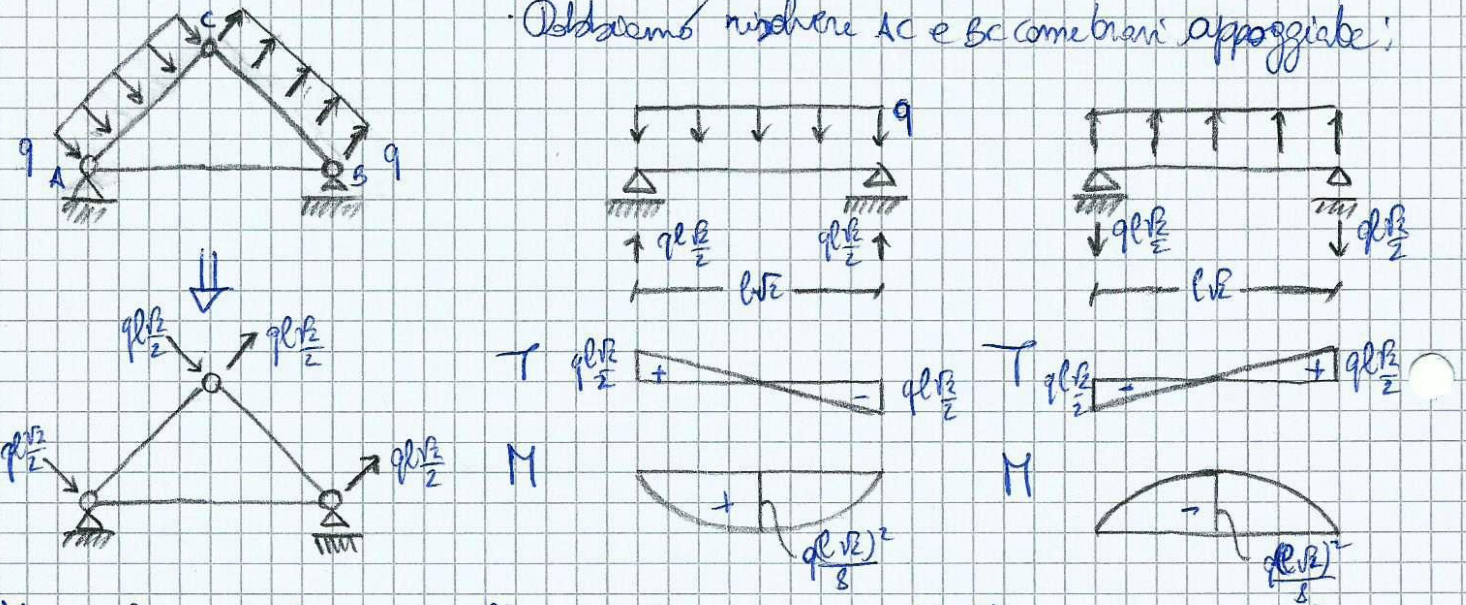 Dobbiamo risolvere AC e BC come travi appoggiate:
C
q
q A B q
ql√2/2 ql√2/2 ql√2/2 ql√2/2
l√2 l√2
ql√2/2 ql√2/2
T ql√2/2 + - ql√2/2 T ql√2/2 - + ql√2/2
ql√2/2 ql√2/2
M + M -
q(l√2)²/8 q(l√2)²/8